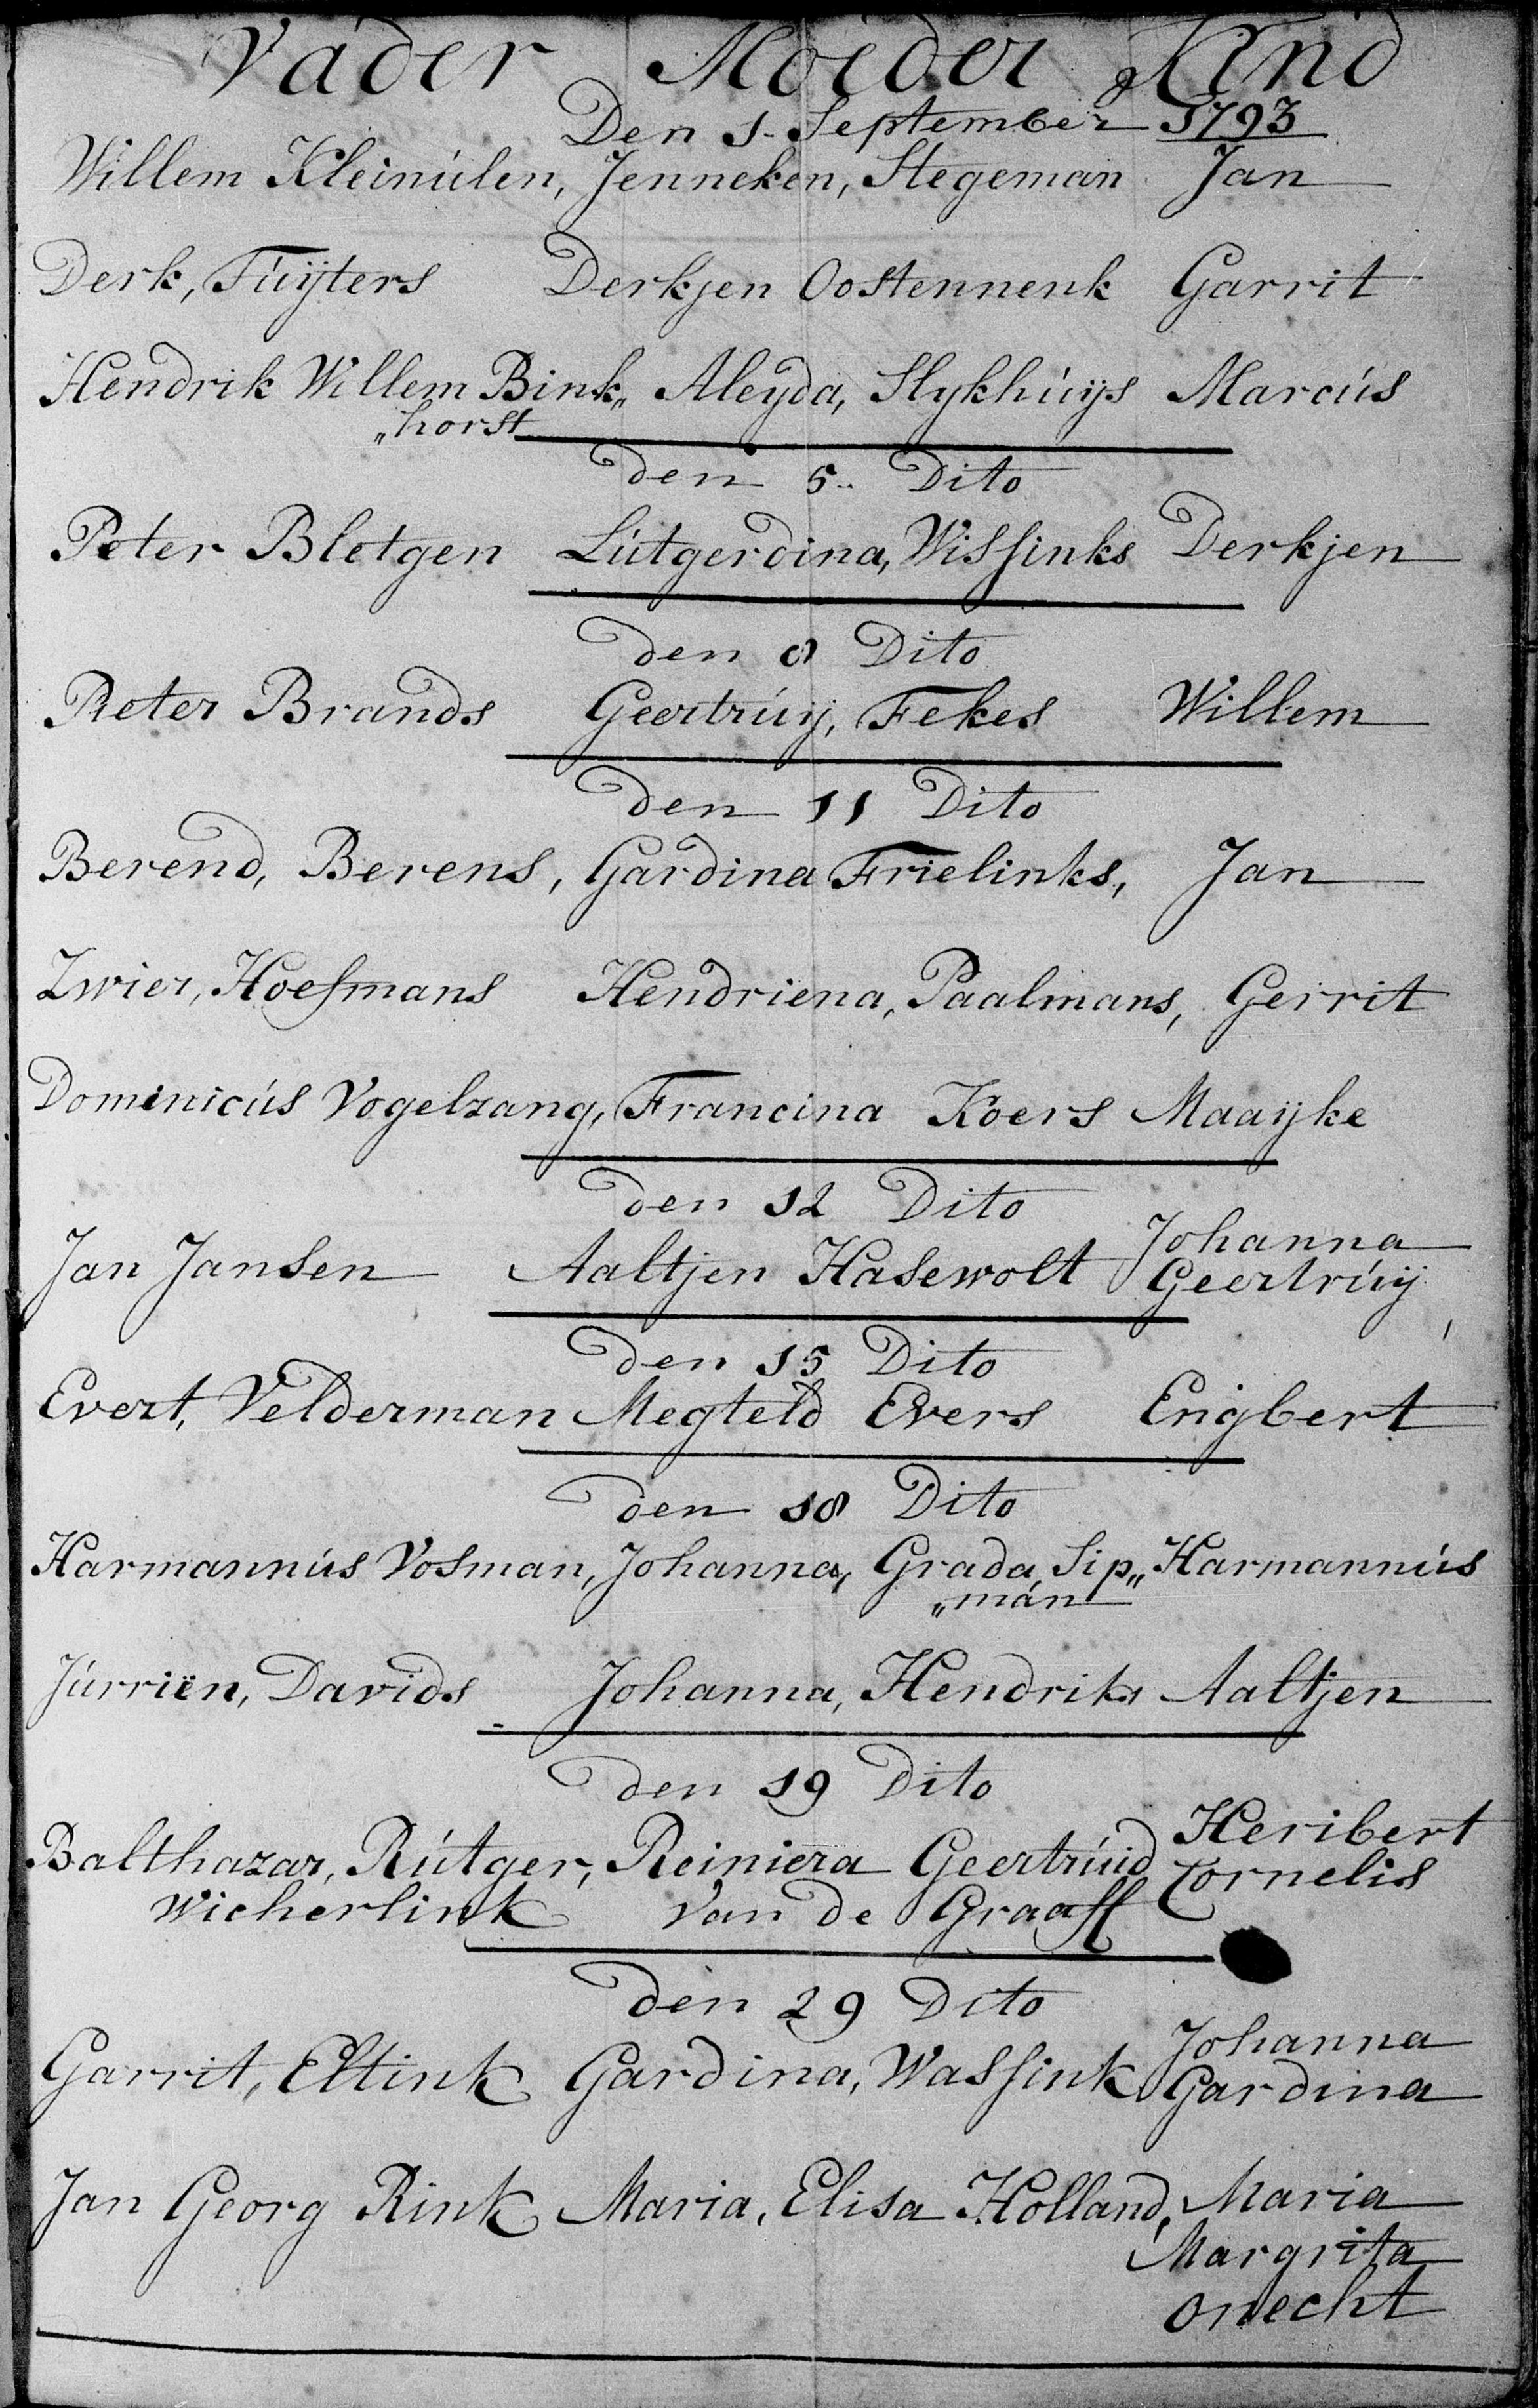 Vader Moeder Kind
Den 1. September 1793
Willem Kleinúlen, Jenneken, Stegeman Jan
Derk, Fúijters Derkjen Oostennenk Garrit
Hendrik Willem Bink„ Aleyda, Slykhúijs Marcús
„horst
den 5.. Dito
Peter Bletgen Lútgerdina, Wissinks Derkjen
den 8 Dito
Peter Brands Geertrúij, Fekes Willem
den 11 Dito
Berend, Berens, Gardina Frielinks, Jan
Zwier, Hoefmans Hendriena, Paalmans, Gerrit
Dominicús Vogelzang, Francina Koers Maaijke
den 12 Dito
Jan Jansen Aaltjen Hasewolt Johanna
Geertrúij
den 15 Dito
Evert, Velderman Megteld Evers Engbert
den 18 Dito
Harmannús Vosman, Johanna, Grada, Sip„ Harmannús
„man
Júrriën, Davids Johanna, Hendriks Aaltjen
den 19 Dito
Balthazar, Rútger, Reiniera Geertrúid Heribert
Wicherlink Van de Graaff Cornelis
den 29 Dito
Garrit, Eltink Gardina, Wassink Johanna
Gardina
Jan Georg Rink Maria, Elisa Holland, Maria
Margrita
onecht